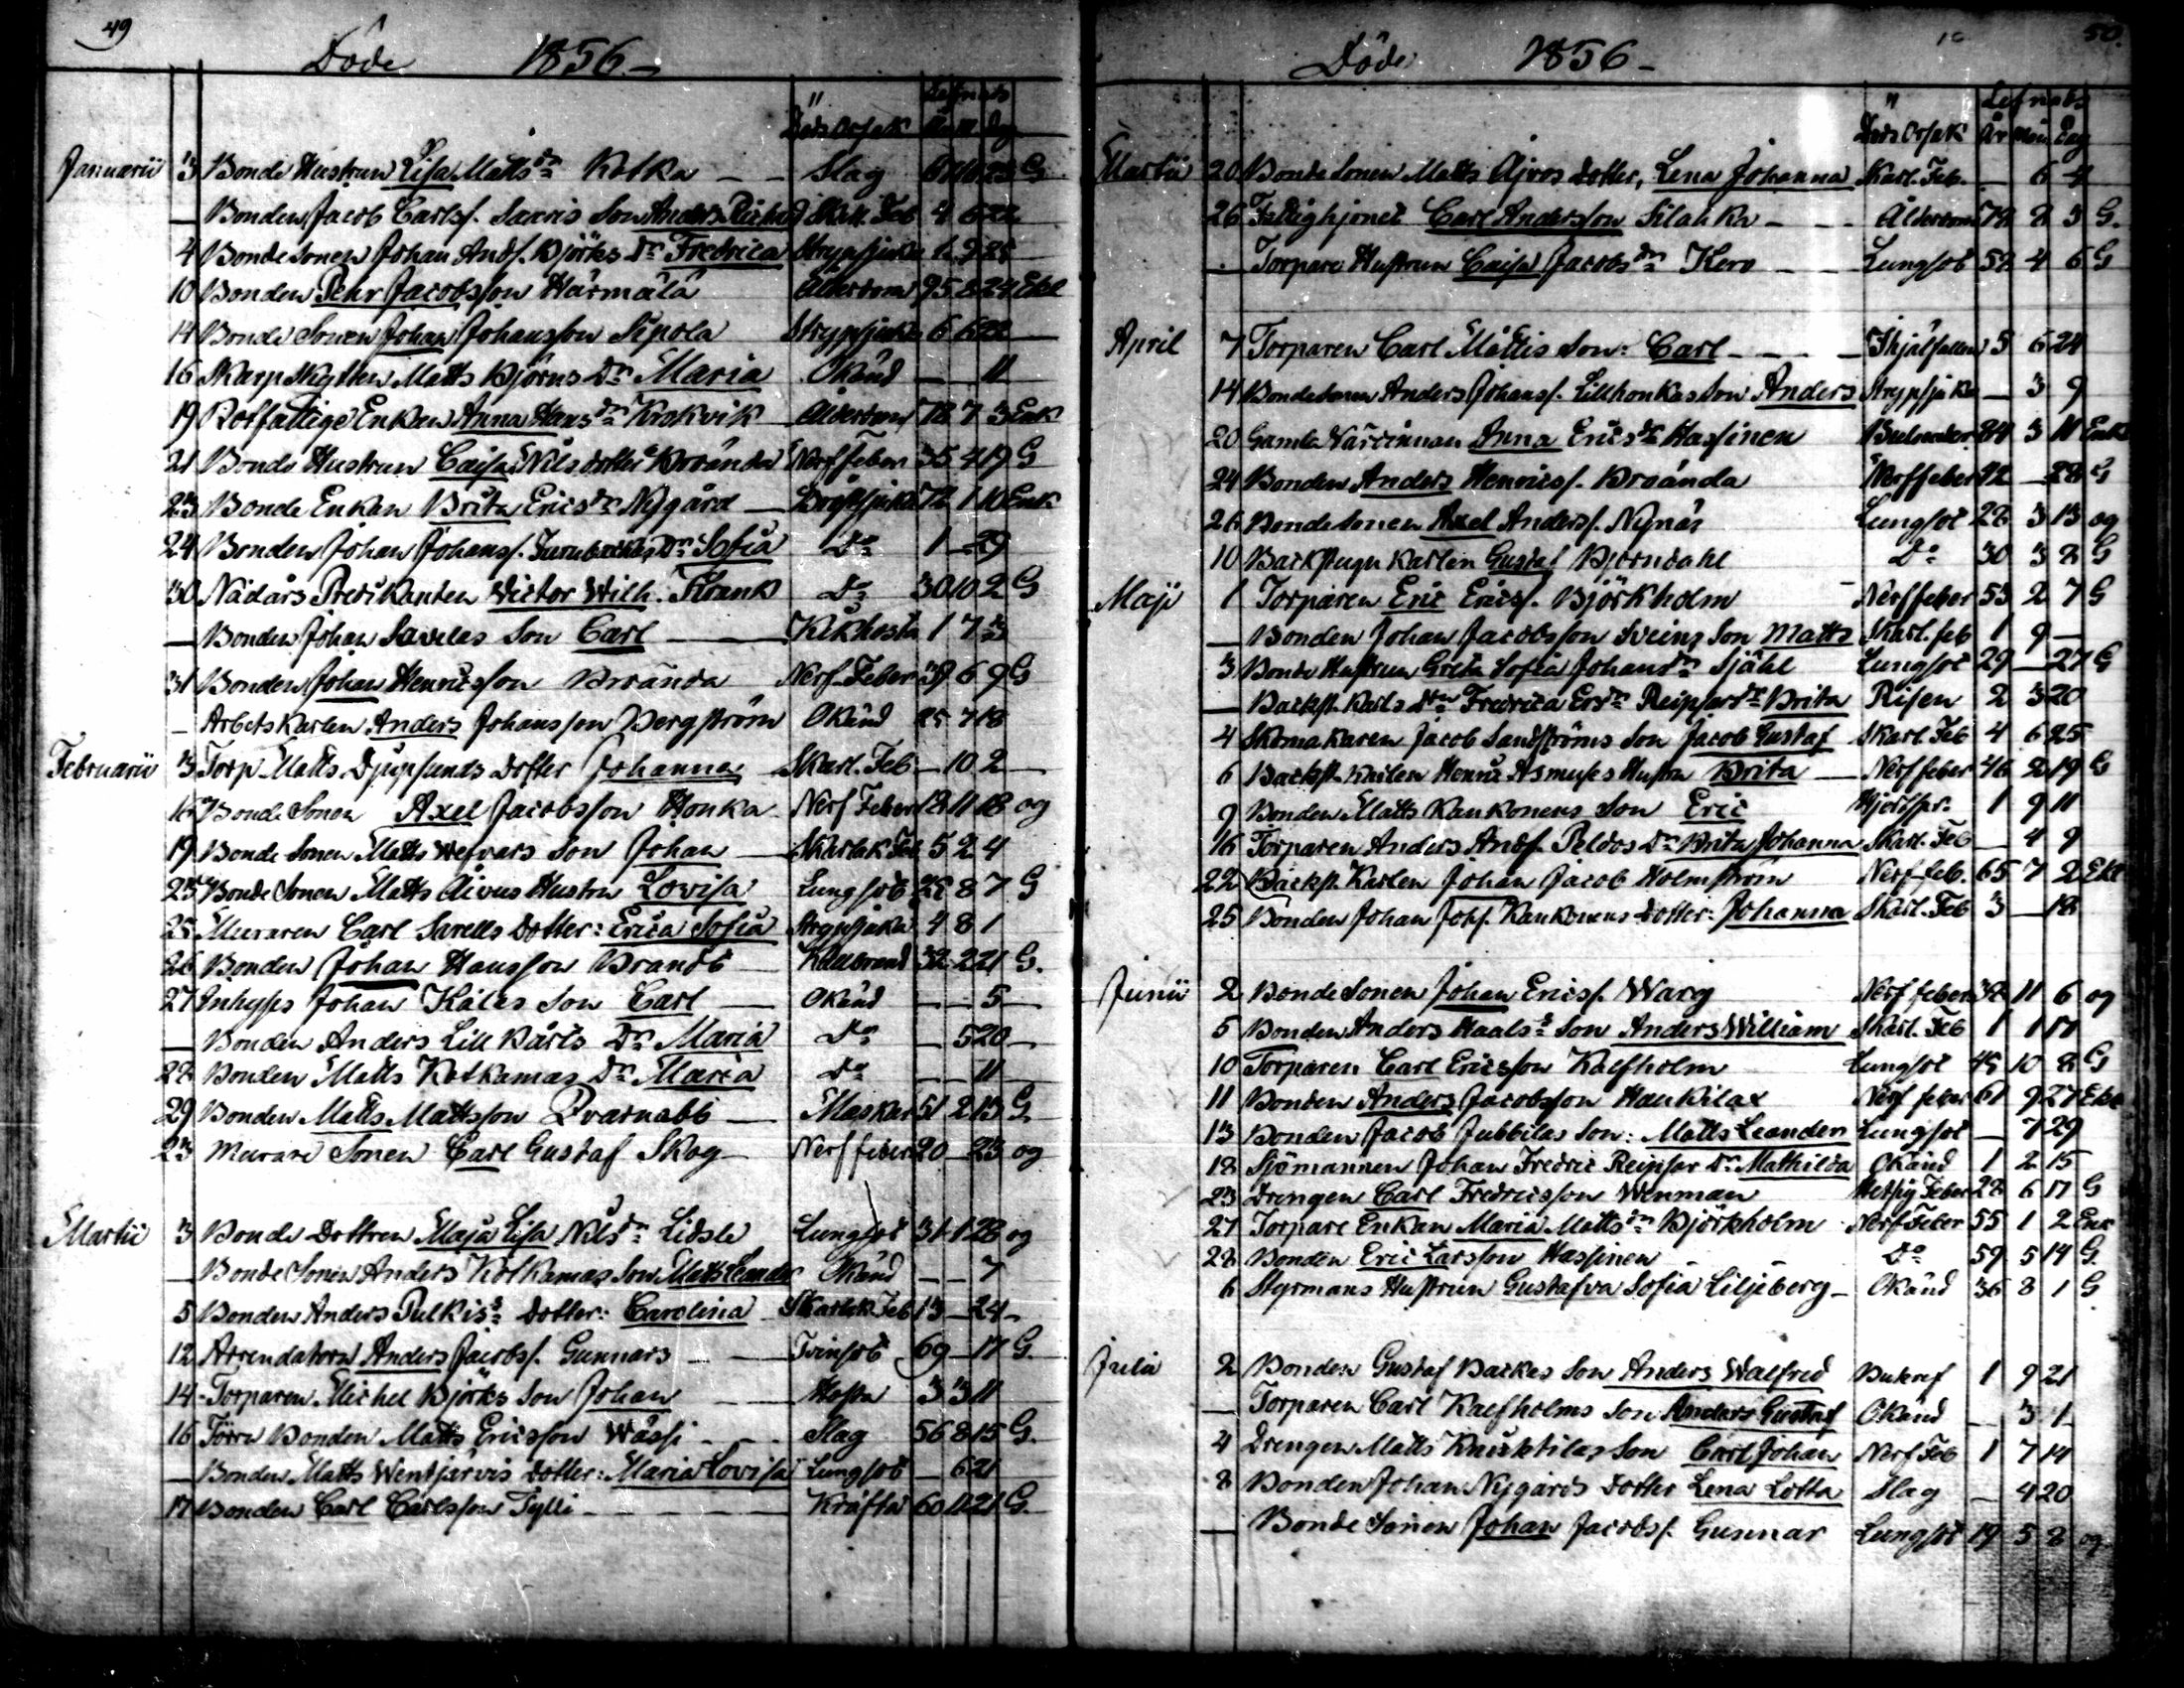 49
Döde 1856.-
Lefnads
Döds Orsak År M Dag
Januarii 3 Bonde Hustrun Lisa Matts dr Kotka - - Slag 67 10 23 G
— Bonden Jacob Carlss. Saaris Son Anders Skarl. Feb 4 6 22
4 Bonde Sonen Johan Ands. Björks Dr Fredrica Strypsjuka 1 9 28
10 Bonden Pehr Jacobsson Härmälä Ålderdom 95 8 24 Ekl
14 Bonde Sonen Johan Johansson Sipola Strypsjuka 6 6 22
16 Skarpskytten Matts Björns Dr Maria Okänd — — 11
19 Rotfattige Enkan Anna Hans dr Krokvik Ålderdom 78 7 3 Enk
21 Bonde Hustrun Caisa Nils dotter Brända Nerffeber 35 4 19 G
23 Bonde Enkan Brita Erics dr Nygård — Bröstsjuka 72 1 10 Enk.
24 Bonden Johan Johanss. Dr Sofia Do 1 — 29
30 Nådårs Predikanten Victor Wilh. Frank Do 30 10 2 G
— Bonden Johan Savelas Son Carl — Kikhosta 1 7 3
31 Bonden Johan Henricsson Brända Nerf-Feber 39 6 9 G
— Arbetskarlen Anders Johansson Bergström Okänd 25 7 18
Februarii 3 Torp. Matts Djupsunds dotter Johanna Skarl. Feb — 10 2
16 Bonde Sonen Axel Jacobsson Honka Nerf Feber 18 11 18 og
19 Bonde Sonen Matts Wefvars Son Johan — Skarlak Feb 5 2 4
25 Bonde Sonen Matts Åivus Hustru Lovisa Lungsot 28 8 7 G
25 Muraren Carl Sarells dotter: Erica Sofia Strypsjuka 4 8 1
26 Bonden Johan Hansson Brandt — Kallbrand 32 2 21 G.
27 Inhyses Johan Kåles Son Carl — Okänd — — 5
— Bonden Anders Lill Kårts Dr Maria Do — 5 20
28 Bonden Matts Kotkamas Dr Maria Do — — 11
29 Bonden Matts Mattsson Qvarnabb — Maskar 51 2 13 G
23 Murare Sonen Carl Gustaf Skog — Nerffeber 20 — 23 og
Martii 3 Bonde Dottren Maja Lisa Nils dr Lidsle Lungsot 31 1 28 og
— Bonde Sonen Anders Kotkamas Son Matts Leander Okänd — — 7
5 Bonden Anders Pulkis dotter: Carolina Skarlak Feb 13 — 24
12 Arrendatorn Anders Jacobs. Gunnars — Tvinsot 69 — 17 G.
14 Torparen Michel Björks Son Johan — Hosta 3 3 11
16 Förra Bonden Matts Ericsson Wässi — Slag 56 8 15 G.
— Bonden Matts Wentjärvis dotter: Maria Lovisa Lungsot — 6 21
17 Bonden Carl Carlsson Tylli — Kräfta 60 11 21 G.
50.
Döde 1856 —
Lefnads
Döds Orsak År Mån Dag
Martii 20 Bonde Sonen Matts Åjvos dotter, Lena Johanna Skarl. Feb. — 6 4
26 Fattighjonet Carl Andersson Silahka — Ålderdom 78 8 3 G.
— Torpare Hustrun Caisa Jacobs dr Kero — Lungsot 52 4 6 G
April 7 Torparen Carl Mattis Son: Carl — Ihjälfallen 5 6 24
14 Bondesonen Anders Johanss. Lillhonkas Son Anders Strypsjuka — 3 9
20 Gamla Värdinnan Anna Erics dr Hassinen 84 3 11 Enk
24 Bonden Anders Henricss. Brända Nerffeber 42 — 28 G
26 Bonde Sonen Axel Anderss. Nynäs Lungsot 22 3 13 og
10 Backstugu Karlen Gustaf Björndahl Do 30 3 8 G
Maji 1 Torparen Eric Ericss. Björkholm Nerffeber 53 2 7 G
— Bonden Johan Jacobsson Sveins Son Matts Skarl. feb 1 9 —
3 Bonde Hustrun Greta Sofia Johans dr Själ Lungsot 29 — 27 G
— Backst. Karls Dtr Fredrica Ers dr Reipsars dr Brita Risen 2 3 20
4 Skomakaren Jacob Sandströms Son Jacob Gustaf Skarl. Feb 4 6 25
6 Backst. Karlen Henric Asmuses Hustru Brita — Nerffeber 46 2 19 G
9 Bonden Matts Kankonens Son Eric Hjertspr. 1 9 11
16 Torparen Anders Ands. Peldos Dr Brita Johanna Skarl. Feb — 4 9
22 Backst. Karlen Johan Jacob Holmström Nerf-feb. 65 7 2 Ekl
25 Bonden Johan Johs. Kankonens dotter: Johanna Skarl. Feb 3 — 18
Junii 2 Bonde Sonen Johan Ericss. Warg Nerffeber 32 11 6 og
5 Bonden Anders Haals Son Anders William Skarl. Feb 1 1 17
10 Torparen Carl Ericsson Kalfholm Lungsot 45 10 8 G
11 Bonden Anders Jacobsson Haukilax Nerf feber 61 9 27 Ekl
13 Bonden Jacob Jubbilas Son: Matts Leander Lungsot — 7 29
18 Sjömannen Johan Fredric Reipsar Dr Mathilda Okänd 1 2 15
23 Drengen Carl Fredricsson Wenman Hetsig Feber 28 6 17 G
27 Torpare Enkan Maria Matts dr Björkholm Nerf-Feber 55 1 2 Enk
28 Bonden Eric Larsson Hassinen — Do 59 5 14 G.
6 Styrmans Hustrun Gustafva Sofia Liljeberg — Okänd 36 8 1 G
Julii 2 Bonden Gustaf Backas Son Anders Walfred Bukref 1 9 21
— Torparen Carl Kalfholms Son Anders Gustaf Okänd — 3 1
4 Drengen Matts Knuktilas Son Carl Johan Nerf Feb 1 7 14
8 Bonden Johan Nygårds dotter Lena Lotta Slag — 4 20
— Bonde Sonen Johan Jacobss. Gunnar Lungsot 19 5 8 og